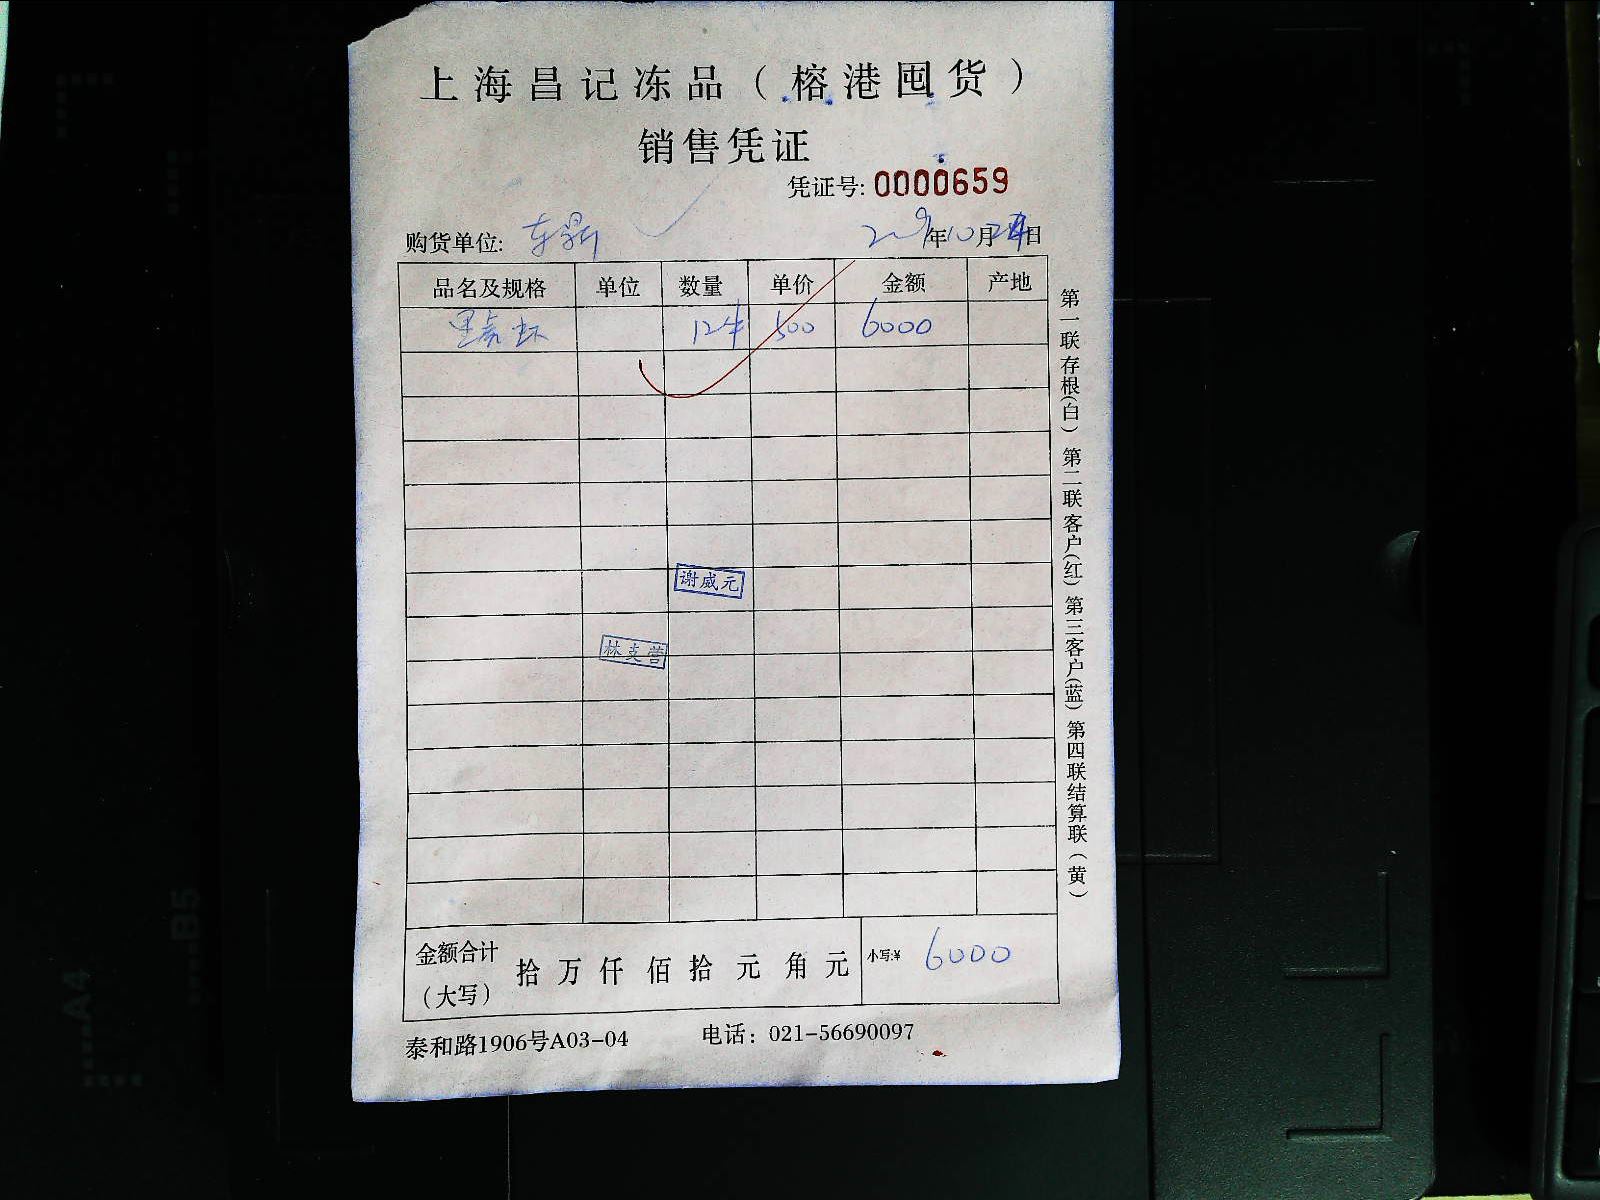 上海昌记冻品（榕港囤货）
销售凭证
凭证号: 0000659
购货单位: 东鼎 2019年10月24日
品名及规格 单位 数量 单价 金额 产地
黑虎虾 12件 500 6000
谢威元
林克营
金额合计（大写） 拾 万 仟 佰 拾 元 角 元 小写:¥ 6000
泰和路1906号A03-04 电话：021-56690097
第一联存根(白) 第二联客户(红) 第三客户(蓝) 第四联结算联（黄）
A4
B5